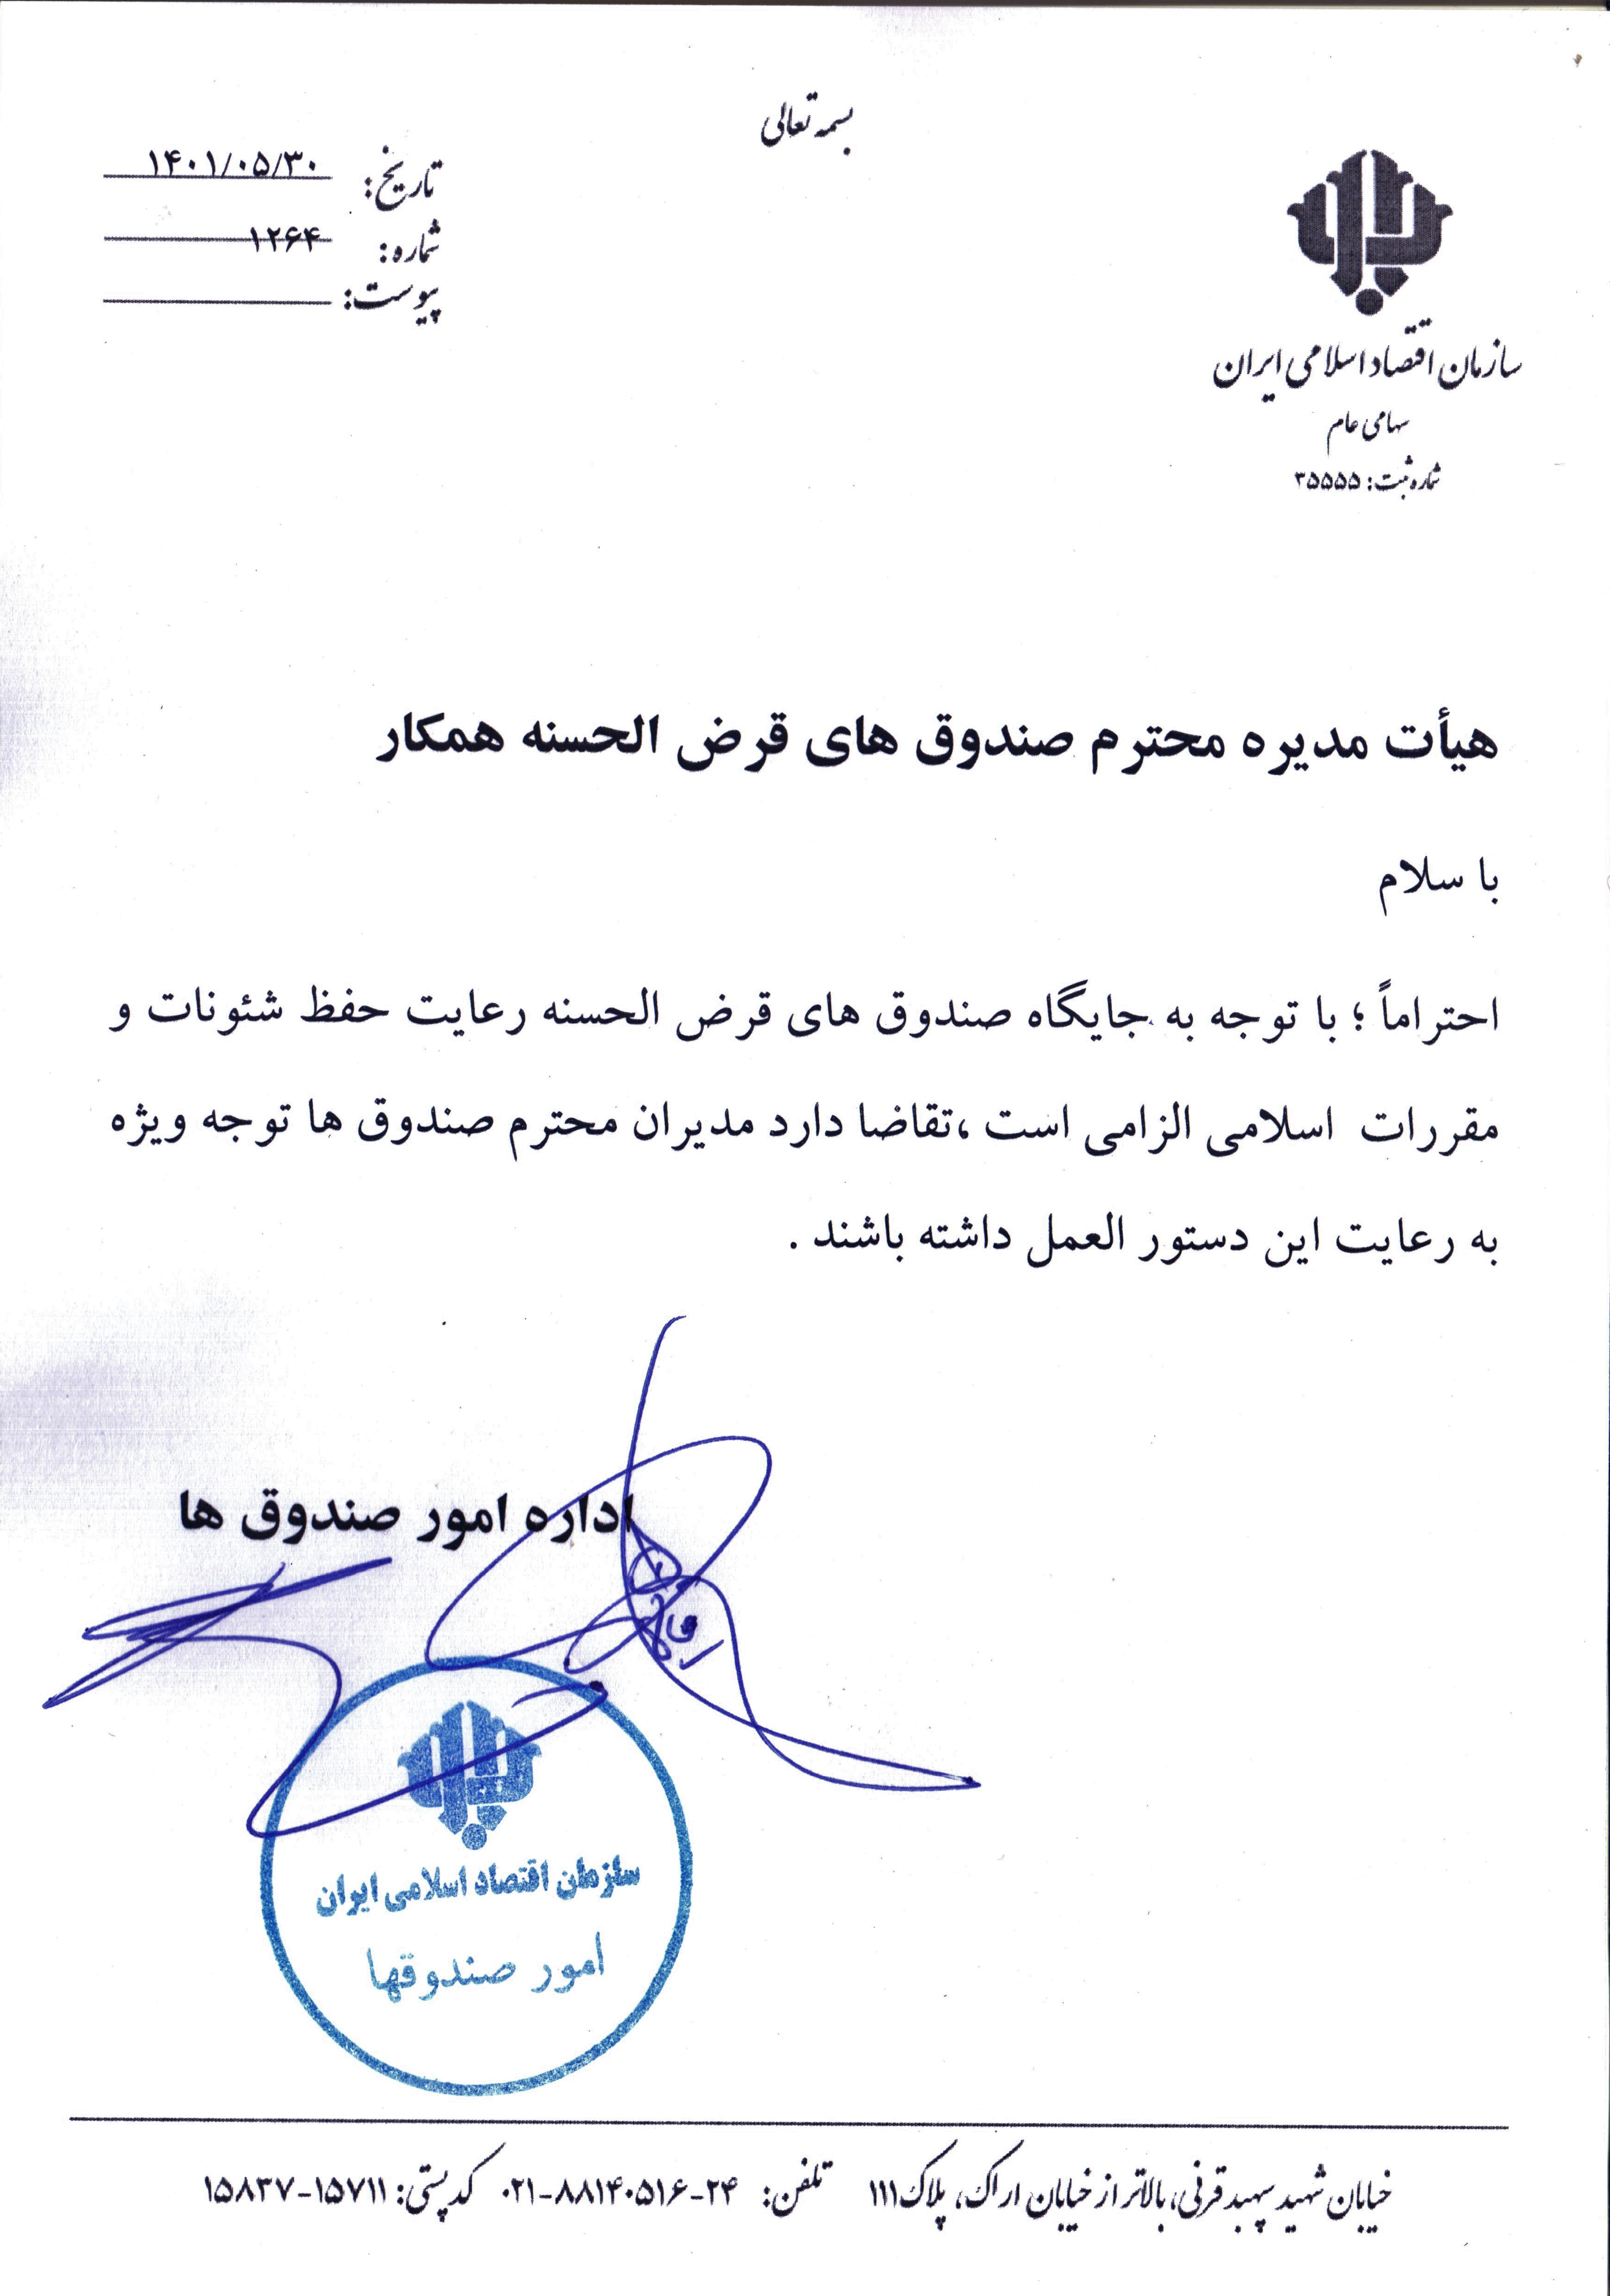 بسمه تعالی
تاریخ: ۱۴۰۱/۰۵/۳۰
شماره: ۱۲۶۴
پیوست:
سازمان اقتصاد اسلامی ایران
سهامی عام
شماره ثبت: ۳۵۵۵۵
هیأت مدیره محترم صندوق های قرض الحسنه همکار
با سلام
احتراماً ؛ با توجه به جایگاه صندوق های قرض الحسنه رعایت حفظ شئونات و
مقررات اسلامی الزامی است ،تقاضا دارد مدیران محترم صندوق ها توجه ویژه
به رعایت این دستور العمل داشته باشند .
اداره امور صندوق ها
سازمان اقتصاد اسلامی ایران
امور صندوقها
خیابان شهید سپهبد قرنی، بالاتر از خیابان اراک، پلاک ۱۱۱ تلفن: ۰۲۱-۸۸۱۴۰۵۱۶-۲۴ کد پستی: ۱۵۸۳۷-۱۵۷۱۱